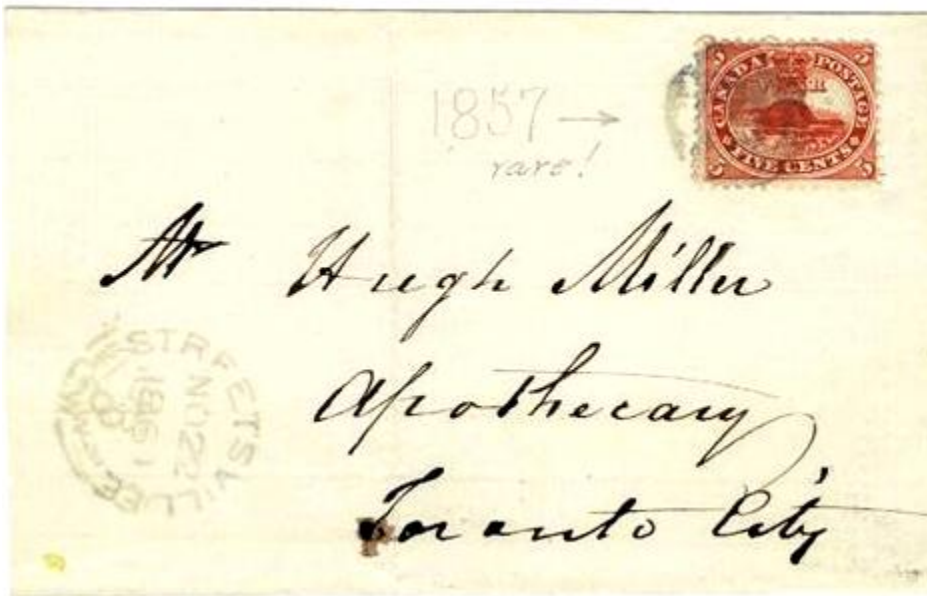 1857 →
rare!
CANADA POSTAGE
5 5
FIVE CENTS
5 5
Mr Hugh Miller
Apothecary
Toronto City
STREETSVILLE
NO 22
1861